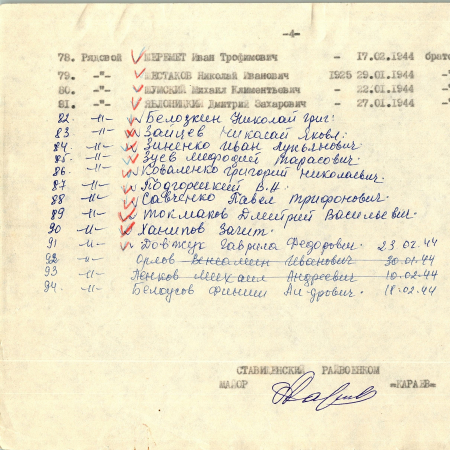 -4-
78. Рядовой ШЕРЕМЕТ Иван Трофимович - 17.02.1944 брат
79. -"- ШЕСТАКОВ Николай Иванович 1925 29.01.1944
80. -"- ШУМСКИЙ Михаил Климентьевич - 22.01.1944
81. -"- ЯБЛОНИЦКИЙ Дмитрий Захарович - 27.01.1944
82. -"- Белоцкий Николай Григ.
83 -"- Зайцев Николай Яковл.
84. -"- Зиненко Иван Лукьянович
85. -"- Зуев Мефодий Тарасович
86. -"- Коваленко Григорий Николаевич
87 -"- Подгорецкий В.Н.
88 -"- Савченко Павел Трифонович
89 -"- Токмаков Дмитрий Васильевич
90 -"- Ханипов Загит.
91 -"- Довжук Гаврила Федорович. 23.02.44
92 -"- Орлов Вениамин Иванович 30.01.44
93 -"- Пенков Михаил Андреевич 10.02.44
94. -"- Белоусов 18.02.44
СТАВИЩЕНСКИЙ РАЙВОЕНКОМ
МАЙОР =КАРАЕВ=